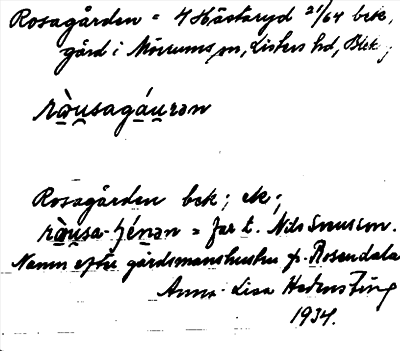 Rosagården = 4 Hästaryd 21/64 bek,
gård i Mörrums sn, Listers hd, Blek.;
rò̲u̲sagáu̲rən
Rosagården bek; ek;
rò̲u̲sa-jénən = far t. Nils Svensson.
Namn efter gårdsmanshustru fr. Rosendala
Anna-Lisa
1934.